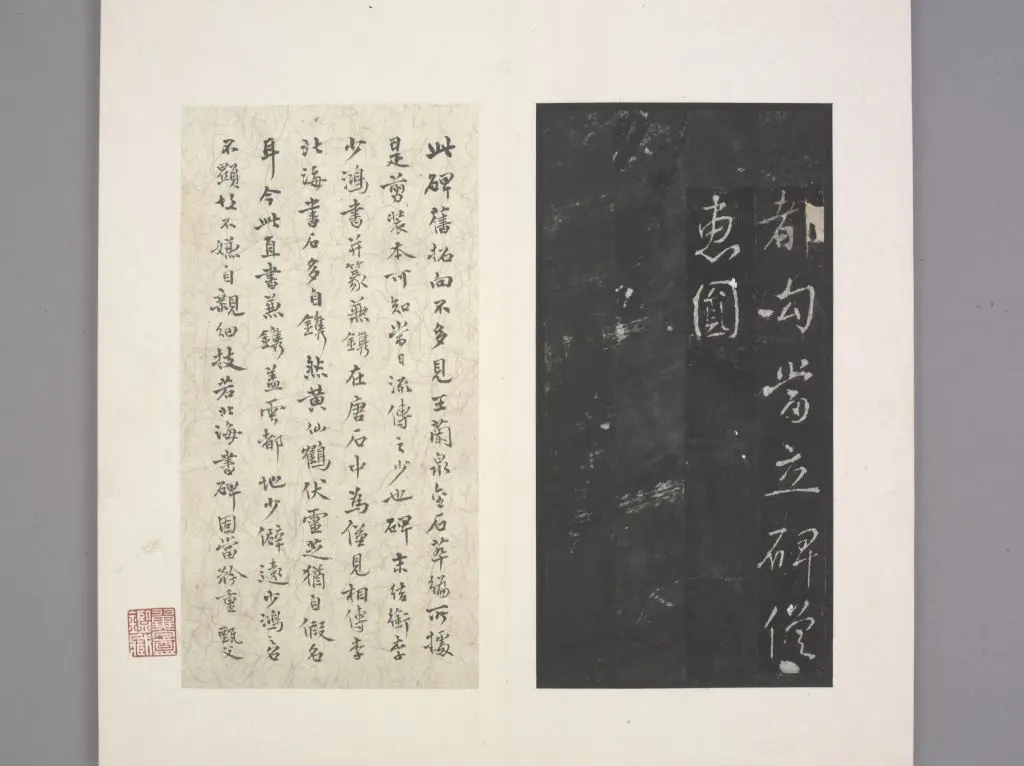 都勾當立碑僧
惠圓
此碑舊拓向不多見王蘭泉金石萃編所據
是剪裝本可知當日流傳之少也碑末結銜李
少鴻書并篆兼鐫在唐石中為僅見相傳李
北海書石多自鐫然黃仙鶴伏靈芝猶自假名
耳今此直書兼鐫蓋雲都地少僻遠少鴻之名
不顯故不嫌自親細技若北海書碑固當矜重 甄父